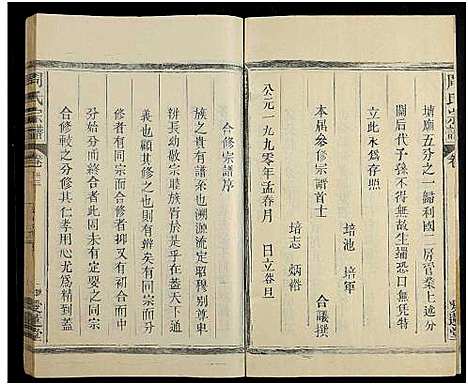 周氏宗譜
卷
墳廟五分之一歸利國二房官業上述分
關后代子孫不得無故生端恐口無凭特
立此永爲存照
本屆參修宗譜首士
培池 培軍
培志 炳裕 合議撰
公元一九九零年孟春月 日立谷旦
合修宗譜序
族之有譜系也溯源流定昭穆別尊卑
辨長幼敬宗聯族胥於是在蓋天下通
義也顧其修之之道則有辨矣有同宗合
修者有同宗而分修者有始合而終分有
分始而終合者此固未有定要之同宗
合修較之分修其仁孝用心尤爲精到蓋
周氏宗譜
卷
愛蓮堂